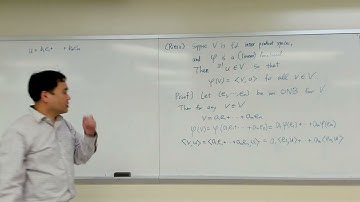 u = b₁e₁ + + bₙeₙ
(Riesz) Suppose V is fd inner product space,
and φ is a (linear)
Then ∃! u ∈ V so that
φ(v) = <v, u> for all v ∈ V
Proof) Let (e₁, …, eₙ) be an ONB for V
Then for any v ∈ V
v = a₁e₁ + … + aₙeₙ
φ(v) = φ(a₁e₁ + … + aₙeₙ) = a₁φ(e₁) + … + aₙφ(eₙ)
<v, u> = <a₁e₁ + … + aₙeₙ, u> = a₁<e₁, u> + … + aₙ<eₙ, u>